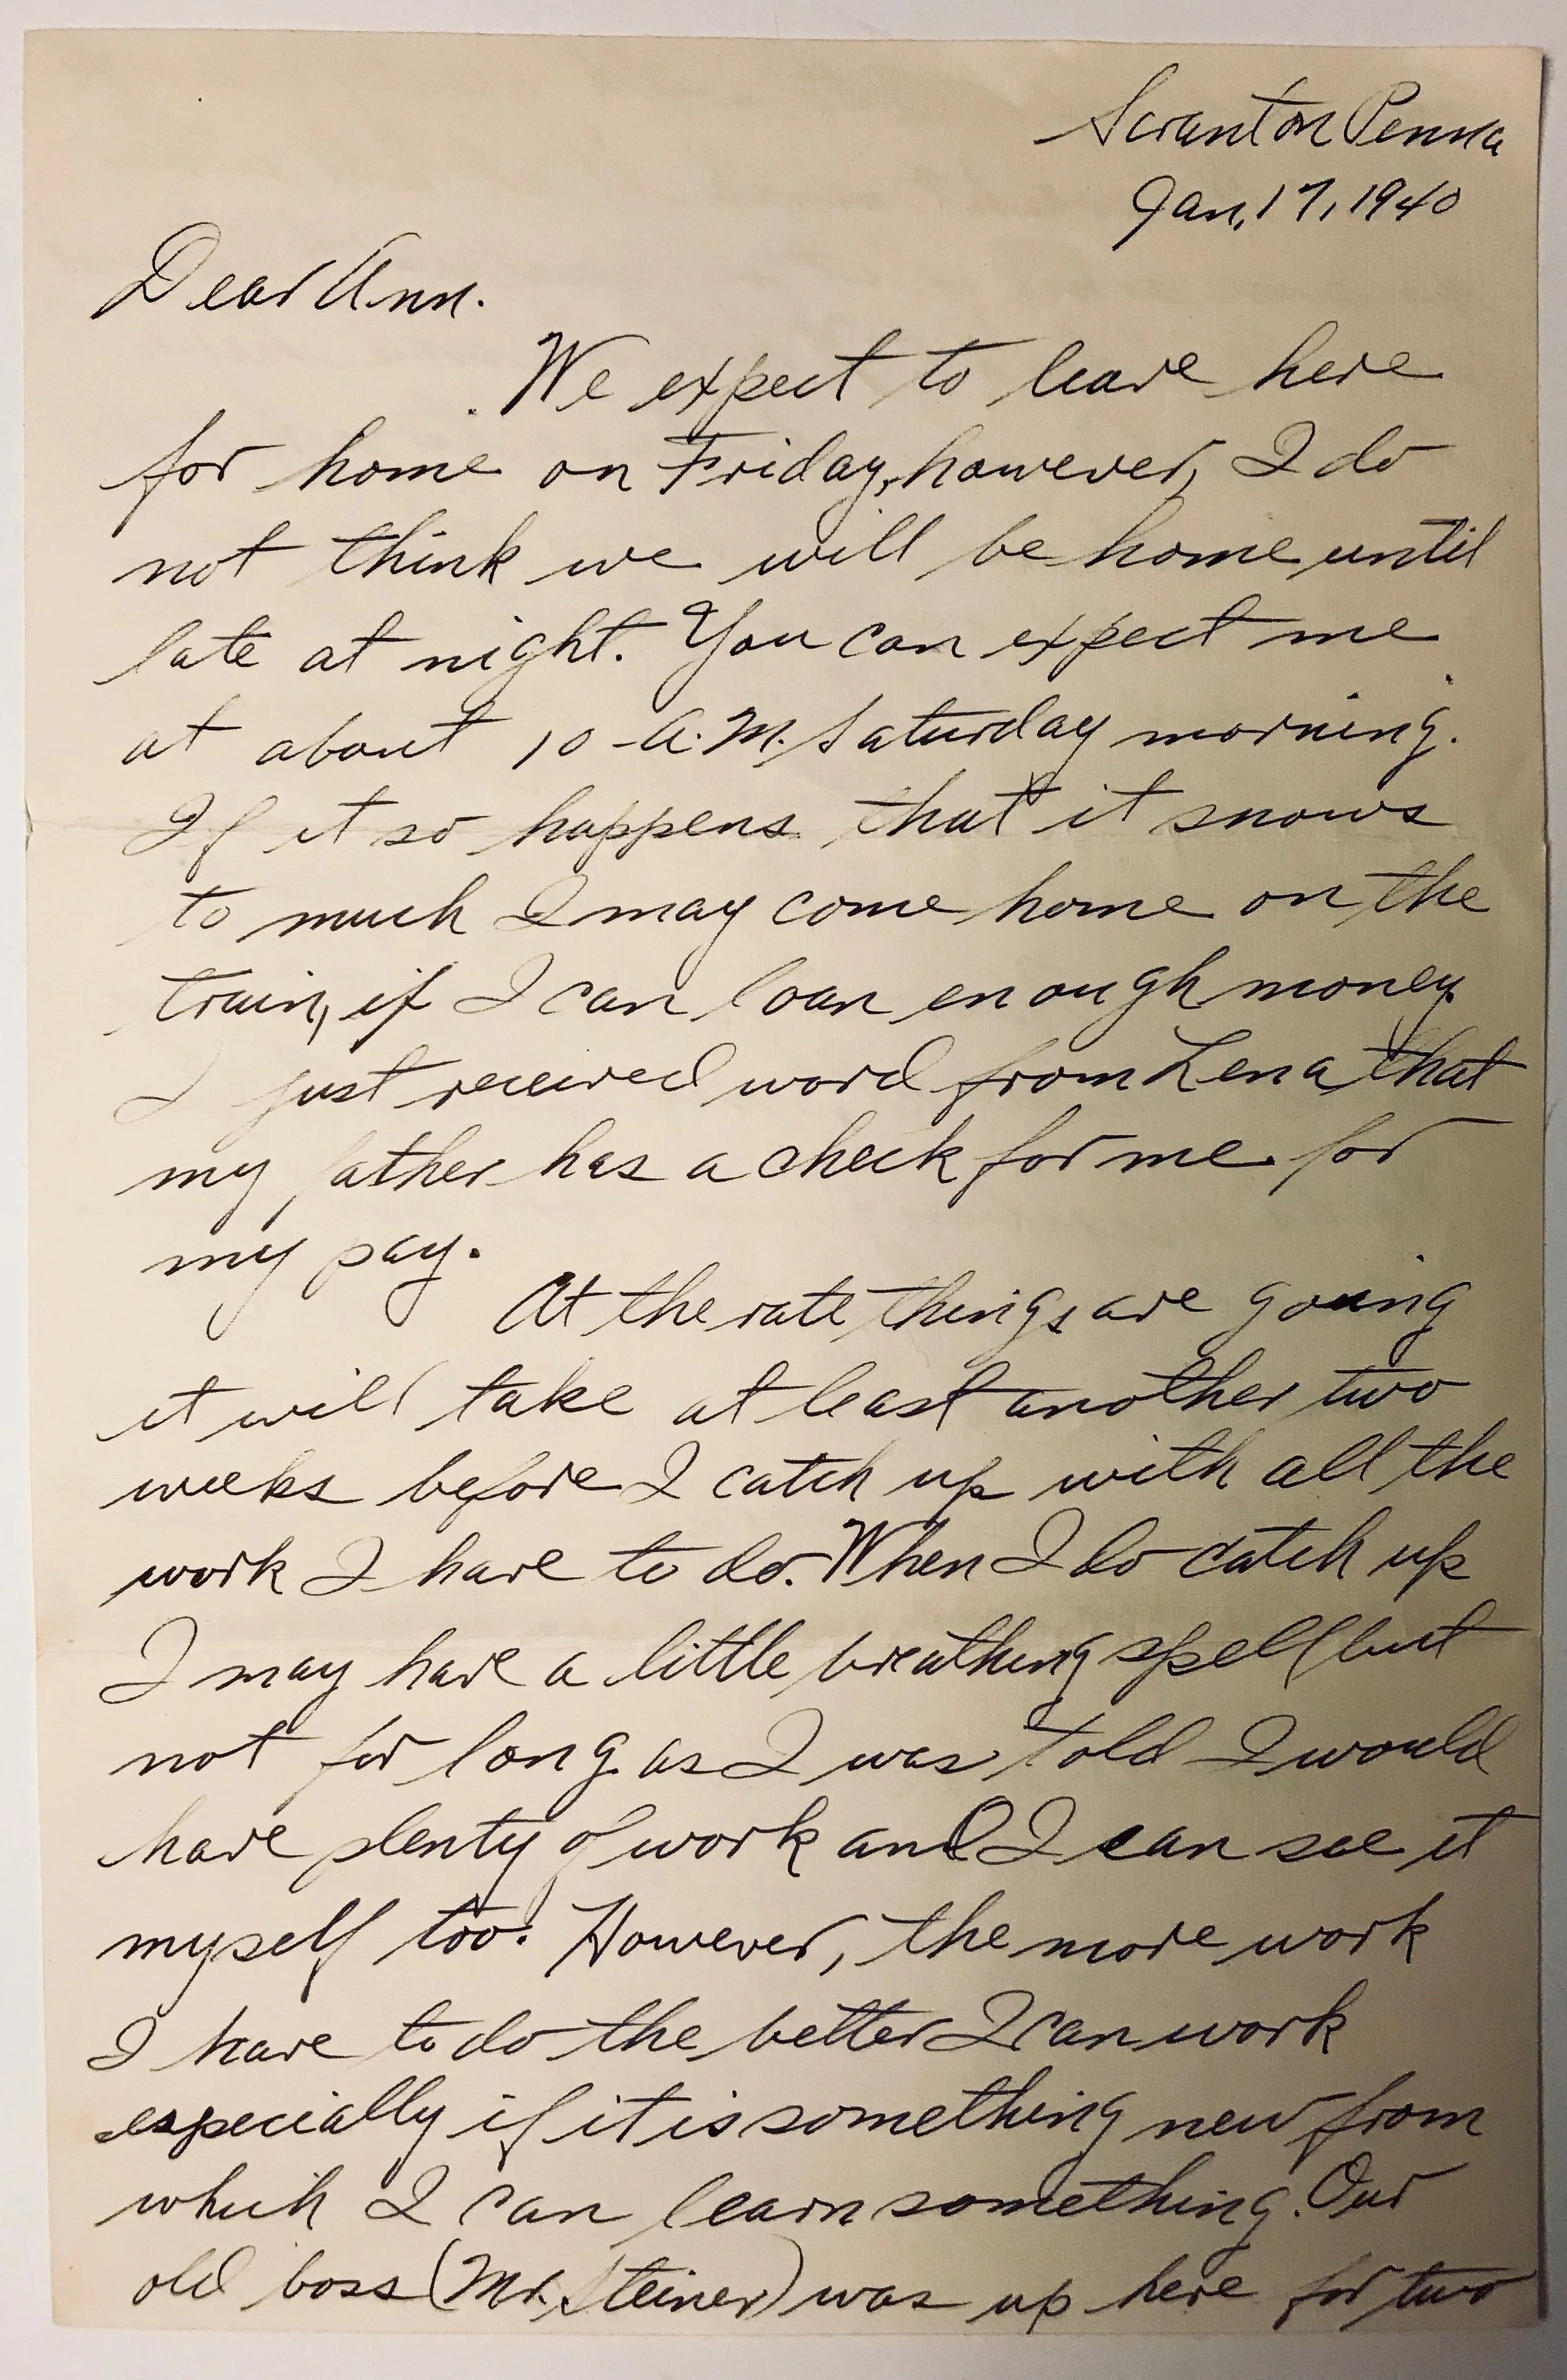 Scranton Penna
Jan. 17, 1940
Dear Ann.
We expect to leave here
for home on Friday, however, I do
not think we will be home until
late at night. You can expect me
at about 10 A.M. Saturday morning.
If it so happens that it snows
to much I may come home on the
train, if I can loan enough money.
I just received word from Lena that
my father has a check for me for
my pay.
At the rate things are going
it will take at least another two
weeks before I catch up with all the
work I have to do. When I do catch up
I may have a little breathing spell but
not for long as I was told I would
have plenty of work and I can see it
myself too. However, the more work
I have to do the better I can work
especially if it is something new from
which I can learn something. Our
old boss (Mr. Steiner) was up here for two